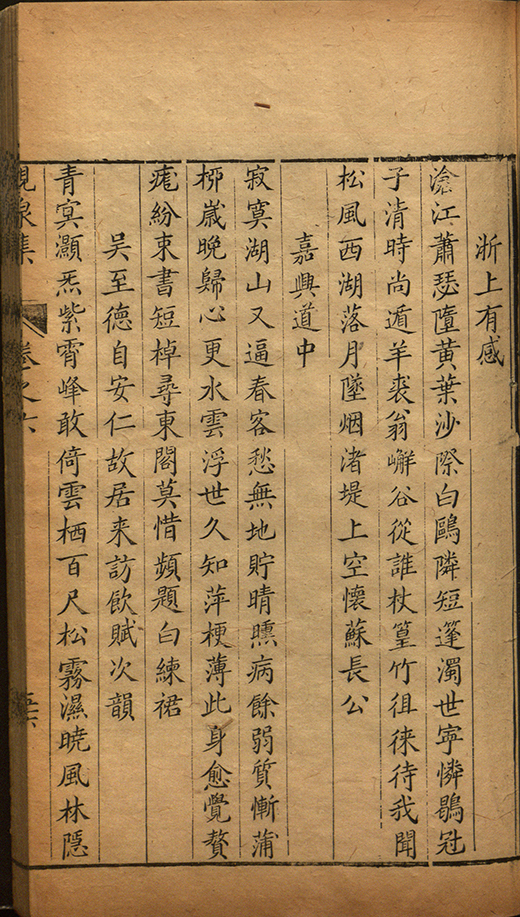 浙上有感
滄江蕭瑟墮黄葉沙際白鷗隣短篷濁世寧憐鶡冠
子清時尚遁羊裘翁嶰谷從誰杖篁竹徂徠待我聞
松風西湖落月墜烟渚堤上空懷蘇長公
嘉興道中
寂寞湖山又逼春客愁無地貯晴曛病餘弱質慚蒲
桺歲晚歸心更水雲浮世久知萍梗薄此身愈覺贅
疣紛束書短棹尋東閣莫惜頻題白練裙
吴至德自安仁故居来訪飲賦次韻
青冥灝炁紫霄峰敢倚雲栖百尺松霧濕曉風林隱
峴泉集
卷之六